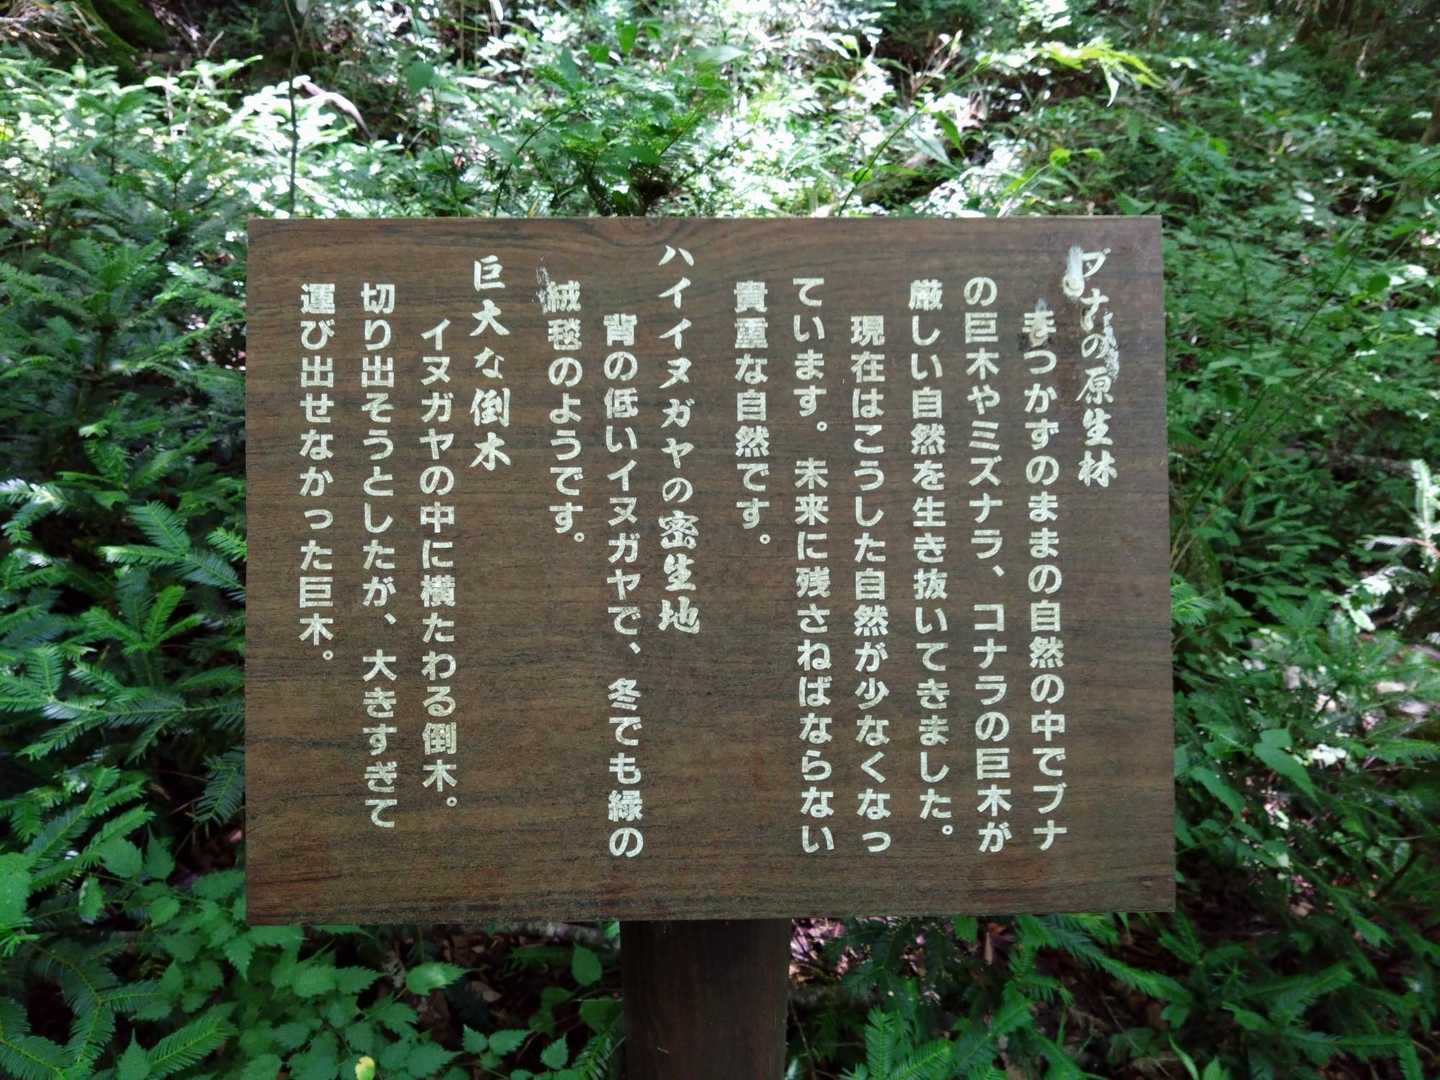 ブナの原生林
手つかずのままの自然の中でブナ
の巨木やミズナラ、コナラの巨木が
厳しい自然を生き抜いてきました。
現在はこうした自然が少なくなっ
ています。未来に残さねばならない
貴重な自然です。
ハイイヌガヤの密生地
背の低いイヌガヤで、冬でも緑の
絨毯のようです。
巨大な倒木
イヌガヤの中に横たわる倒木。
切り出そうとしたが、大きすぎて
運び出せなかった巨木。